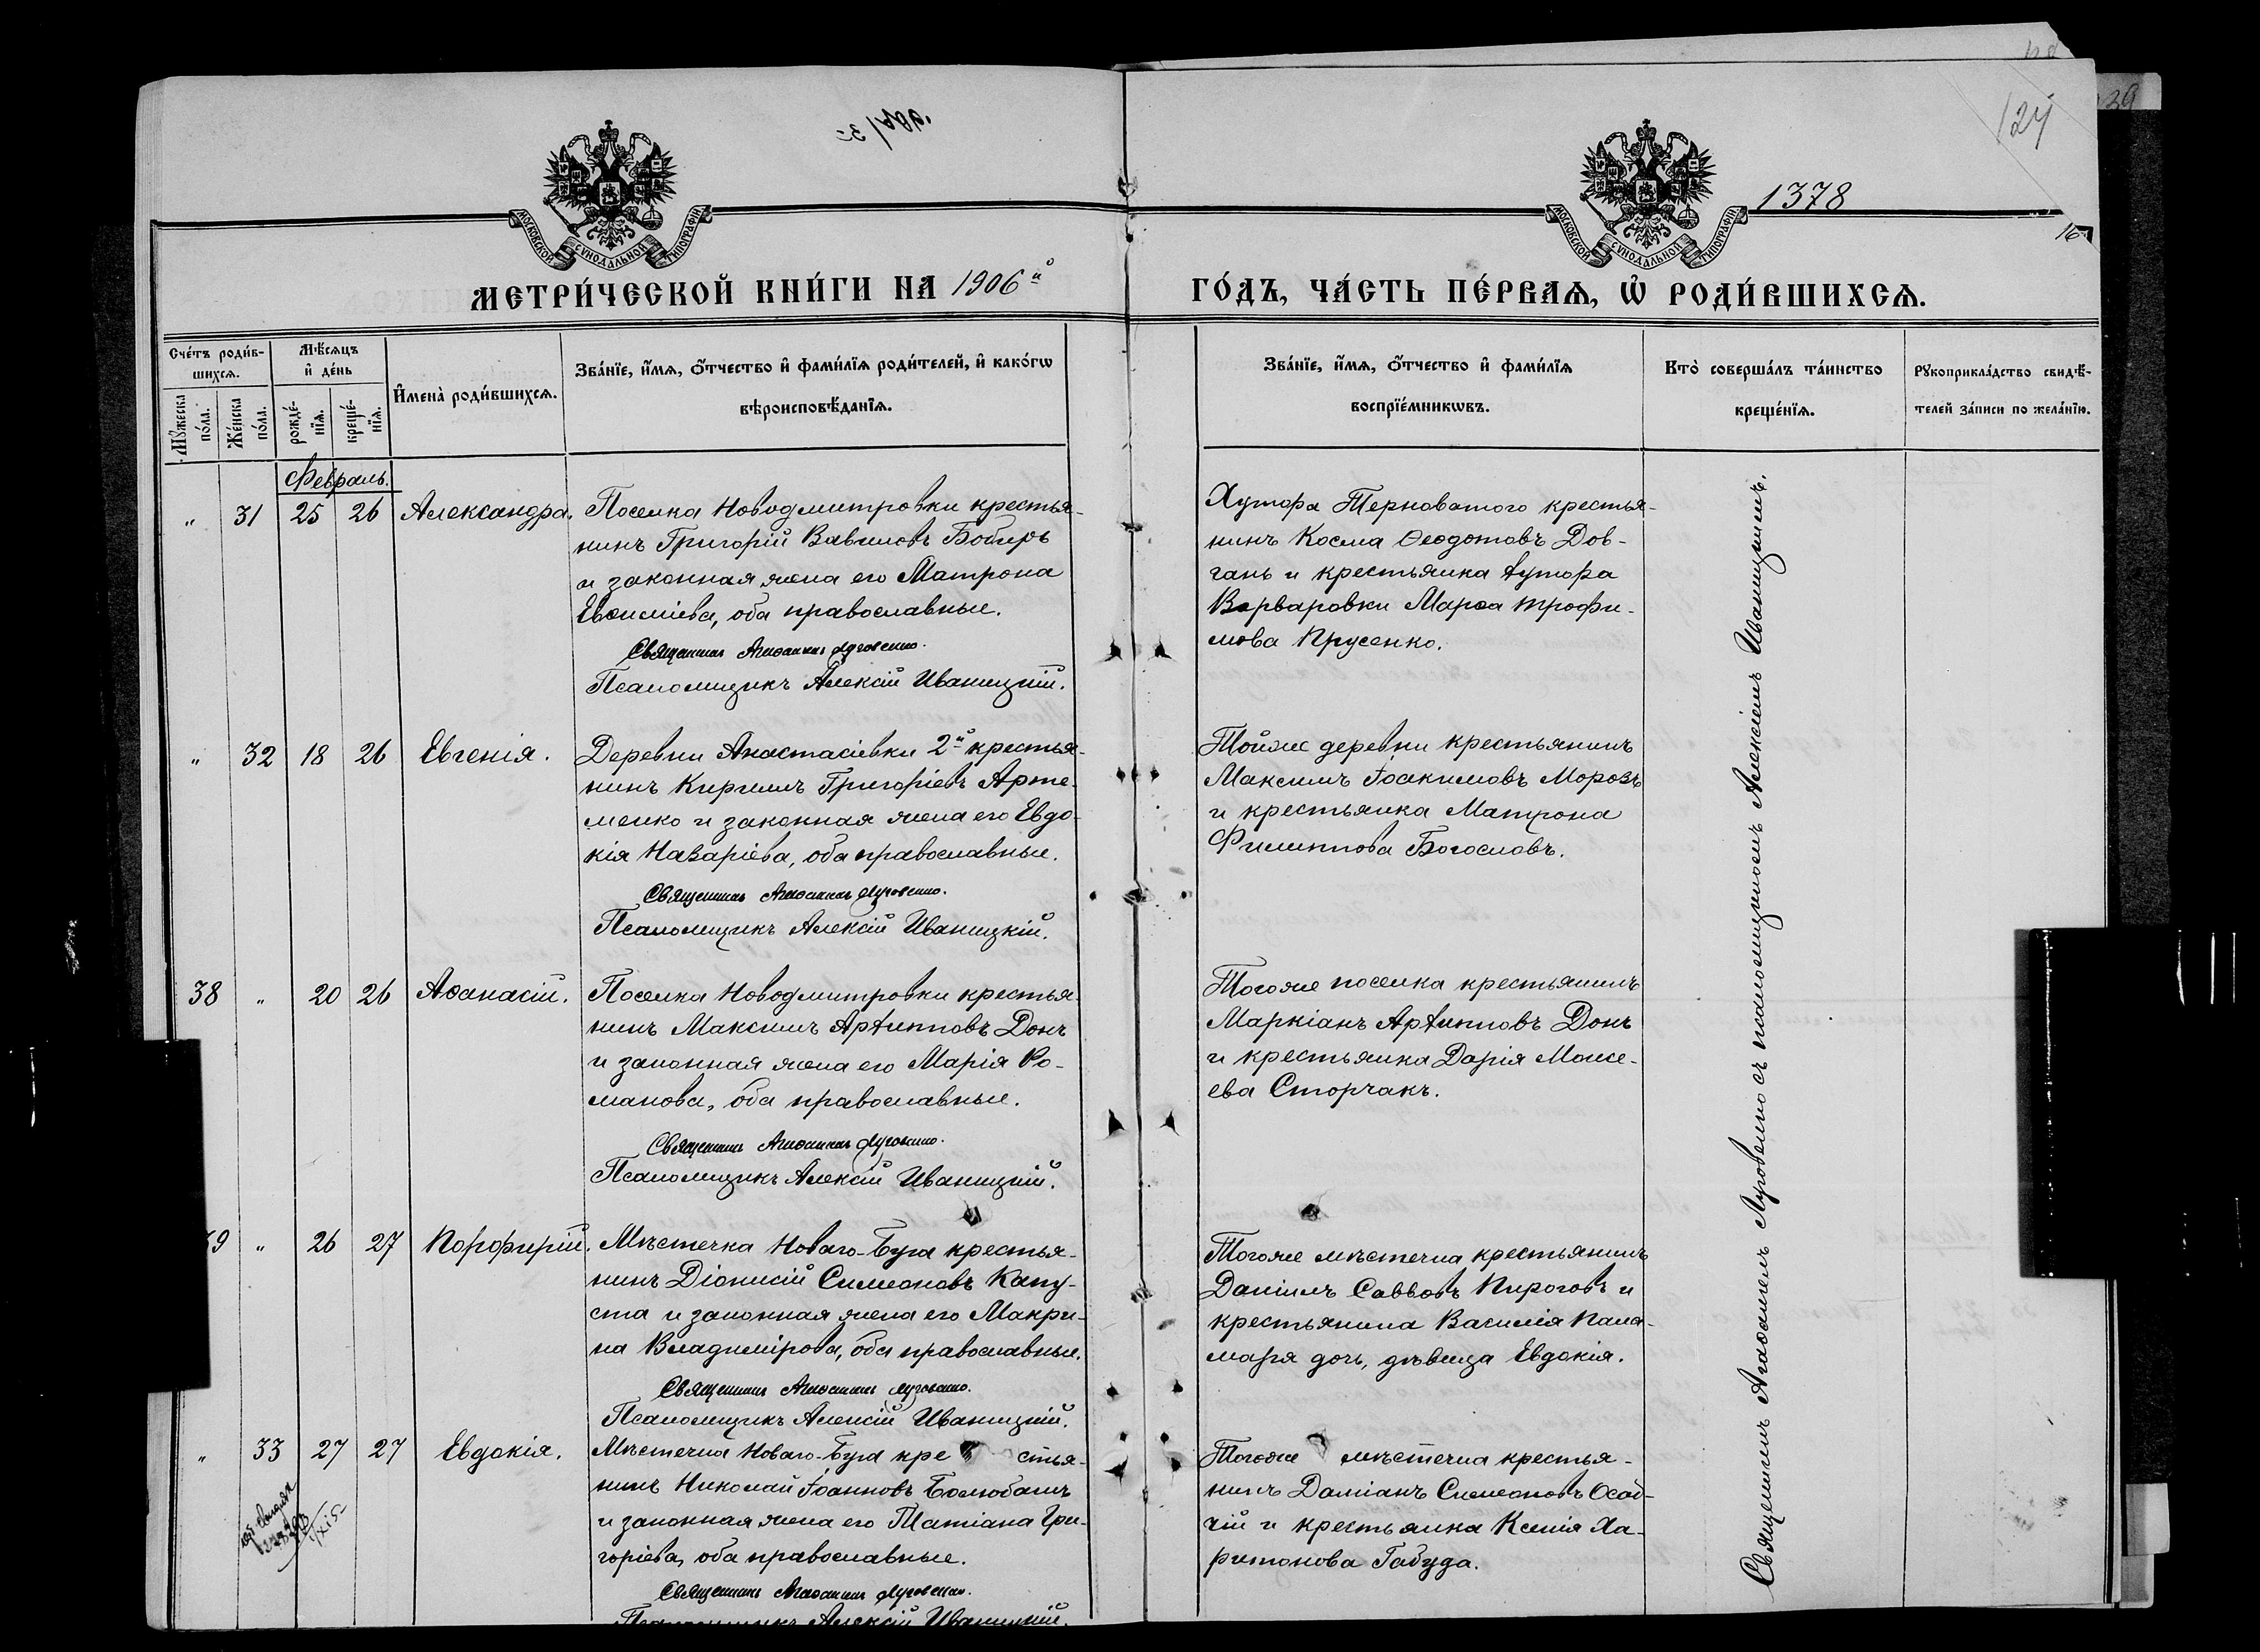 1378
16
МОСКОВСКОЙ СѴНОДАЛЬНОЙ ТИПОГРАФІИ
МОСКОВСКОЙ СѴНОДАЛЬНОЙ ТИПОГРАФІИ
МЕТРИ́ЧЕСКОЙ КНИ́ГИ НА 1906й
ГО́ДЪ, ЧА́СТЬ ПЕ́РВАѦ, Ѡ҆ РОДИ́ВШИХСѦ.
Сче́тъ роди́в-
шихсѧ.
Мꙋ́жеска по́ла.
Же́нска по́ла.
Мѣ́сѧцъ
и҆ де́нь
рожде́-
нїѧ.
креще́-
нїѧ.
И҆мена̀ роди́вшихсѧ.
Зва́нїе, и҆́мѧ, ѻ҆́тчество и҆ фами́лїѧ роди́телей, и҆ како́гѡ
вѣроисповѣ́данїѧ.
Зва́нїе, и҆́мѧ, ѻ҆́тчество и҆ фами́лїѧ
воспрїе́мникѡвъ.
Кто̀ соверша́лъ та́инство
креще́нїѧ.
Рꙋкоприкла́дство свидѣ́-
телей за́писи по жела́нїю.
Февраль.
" 31 25 26 Александра.
Поселка Новодмитровки крестья-
нинъ Григорій Вавиловъ Бобырь
и законная жена его Матрона
Евѳиміева, оба православные.
Священникъ Агаѳаникъ Луговенко.
Псаломщикъ Алексій Иваницкій.
Хутора Терноватого крестья-
нинъ Косма Ѳеодотовъ Дов-
гань и крестьянка хутора
Варваровки Марѳа Трофи-
мова Прусенко.
" 32 18 26 Евгенія.
Деревни Анастасіевки 2й крестья-
нинъ Кириллъ Григоріевъ Арте-
менко и законная жена его Евдо-
кія Назаріева, оба православные.
Священникъ Агаѳаникъ Луговенко.
Псаломщикъ Алексій Иваницкій.
Тойже деревни крестьянинъ
Максимъ Іоакимовъ Морозъ
и крестьянка Матрона
Филиппова Богословъ.
38 " 20 26 Аѳанасій.
Поселка Новодмитровки крестья-
нинъ Максимъ Архипповъ Донъ
и законная жена его Марія Ро-
манова, оба православные.
Священникъ Агаѳаникъ Луговенко.
Псаломщикъ Алексій Иваницкій.
Тогоже поселка крестьянинъ
Маркіанъ Архипповъ Донъ
и крестьянка Дарія Моисе-
ева Сторчакъ.
39 " 26 27 Порфирій.
Мѣстечка Новаго-Буга крестья-
нинъ Діонисій Симеоновъ Капу-
ста и законная жена его Макри-
на Владимірова, оба православные.
Священникъ Агаѳаникъ Луговенко.
Псаломщикъ Алексій Иваницкій.
Тогоже мѣстечка крестьянинъ
Даніилъ Саввовъ Пироговъ и
крестьянина Василія Пала-
маря дочь, дѣвица Евдокія.
" 33 27 27 Евдокія.
Мѣстечка Новаго-Буга крестья-
нинъ Николай Іоанновъ Болюбашъ
и законная жена его Татіана Гри-
горіева, оба православные.
Священникъ Агаѳаникъ Луговенко.
Псаломщикъ Алексій Иваницкій.
Тогоже мѣстечка крестья-
нинъ Даміанъ Симеоновъ Осад-
чій и крестьянка Ксенія Ха-
ритонова Габуда.
Священникъ Агаѳаникъ Луговенко съ псаломщикомъ Алексіемъ Иваницкимъ.